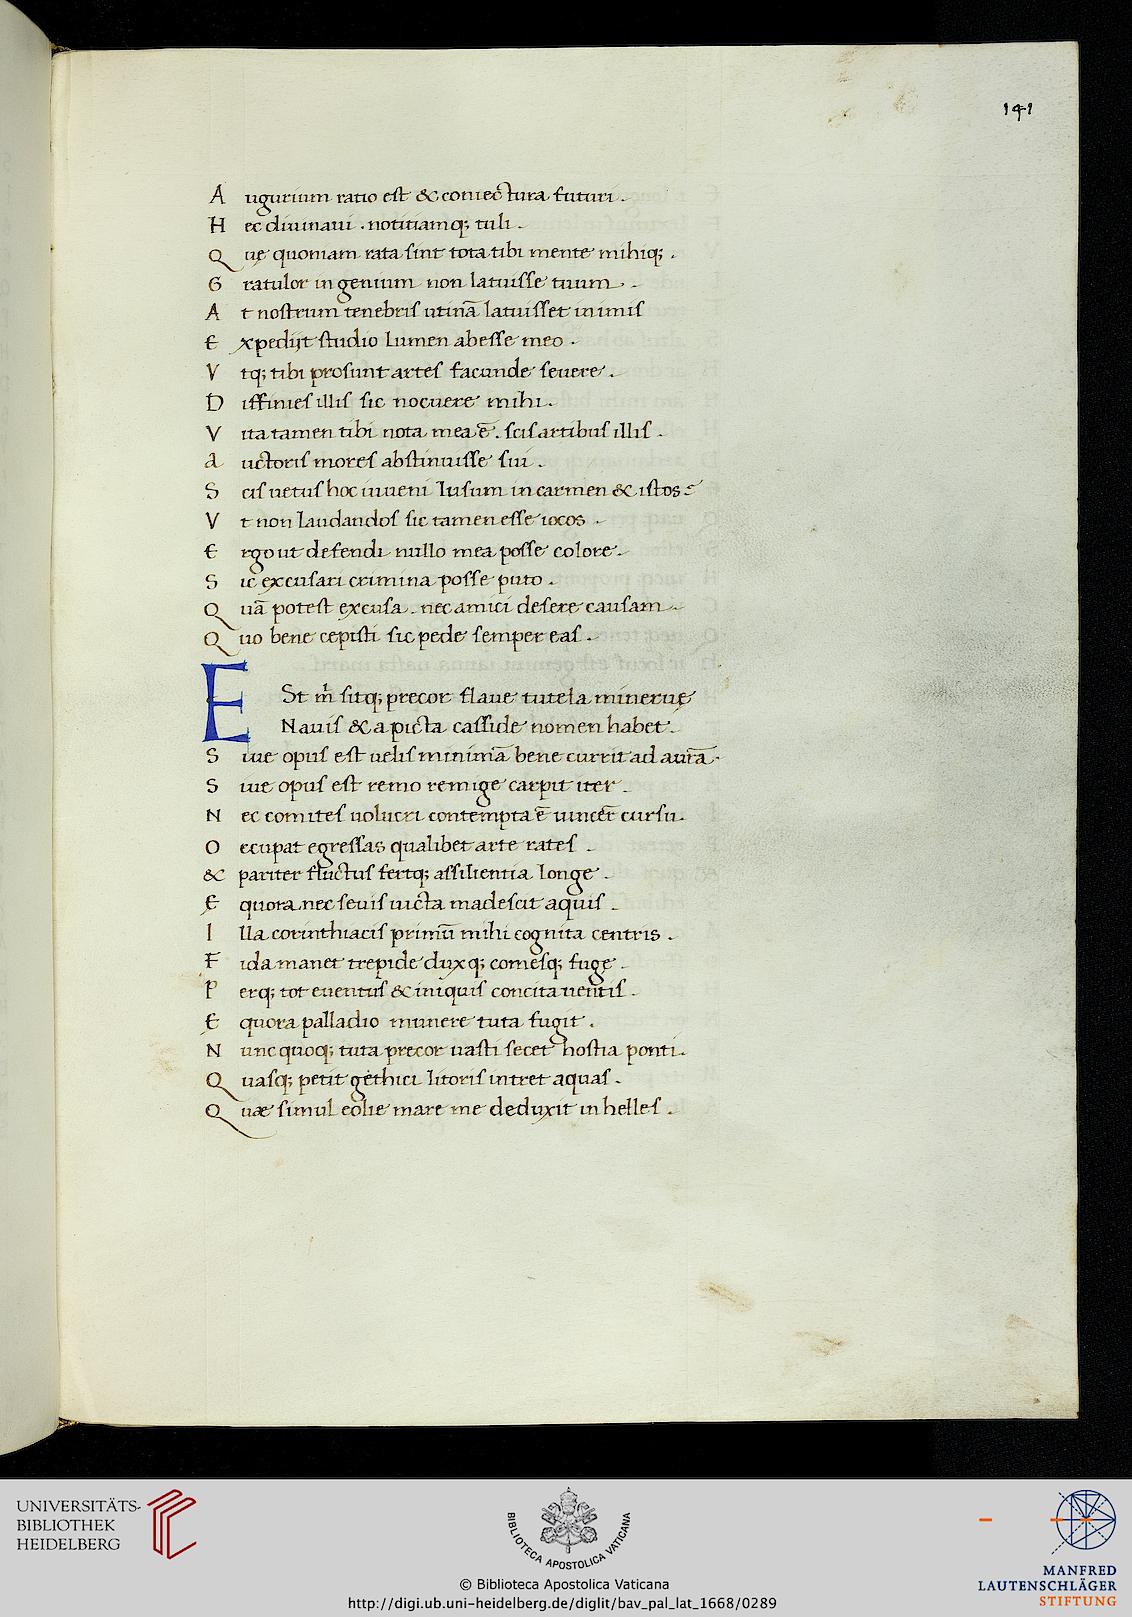 141
Augurium ratio est & coniectura futuri .
Hec diuinaui . notitiamq; tuli .
Quę quoniam rata sint tota tibi mente mihiq; .
Gratulor ingenium non latuisse tuum .
At nostrum tenebris utinā latuisset in imis
Expedijt studio lumen abesse meo .
Vtq; tibi prosunt artes facunde seuere .
Dissimies illis sic nocuere mihi .
Vita tamen tibi nota mea ē . scis artibus illis .
auctoris mores abstinuisse sui .
Scis uetus hoc iuueni lusum in carmen & istos
Vt non laudandos sic tamen esse iocos .
Ergo ut defendi nullo mea posse colore .
Sic excusari crimina posse puto .
Quā potest excusa . nec amici desere causam .
Quo bene cepisti sic pede semper eas .
ESt m̄ sitq; precor flaue tutela mineruę
Nauis & a picta casside nomen habet .
Siue opus est uelis minimā bene currit ad aurā .
Siue opus est remo remige carpit iter .
Nec comites uolucri contempta ē uincer̄ cursu .
Occupat egressas qualibet arte rates .
& pariter fluctus fertq; assilientia longe .
Ęquora nec seuis uicta madescit aquis .
Illa corinthiacis primū mihi cognita centris .
Fida manet trepide dux q; comesq; fuge .
Perq; tot euentus & iniquis concita uentis .
Ęquora palladio munere tuta fugit .
Nunc quoq; tuta precor uasti secet hostia ponti .
Quasq; petit gethici litoris intret aquas .
Quæ simul eolie mare me deduxit in helles .
UNIVERSITÄTS-
BIBLIOTHEK
HEIDELBERG
BIBLIOTECA APOSTOLICA VATICANA
MANFRED
LAUTENSCHLÄGER
STIFTUNG
© Biblioteca Apostolica Vaticana
http://digi.ub.uni-heidelberg.de/diglit/bav_pal_lat_1668/0289